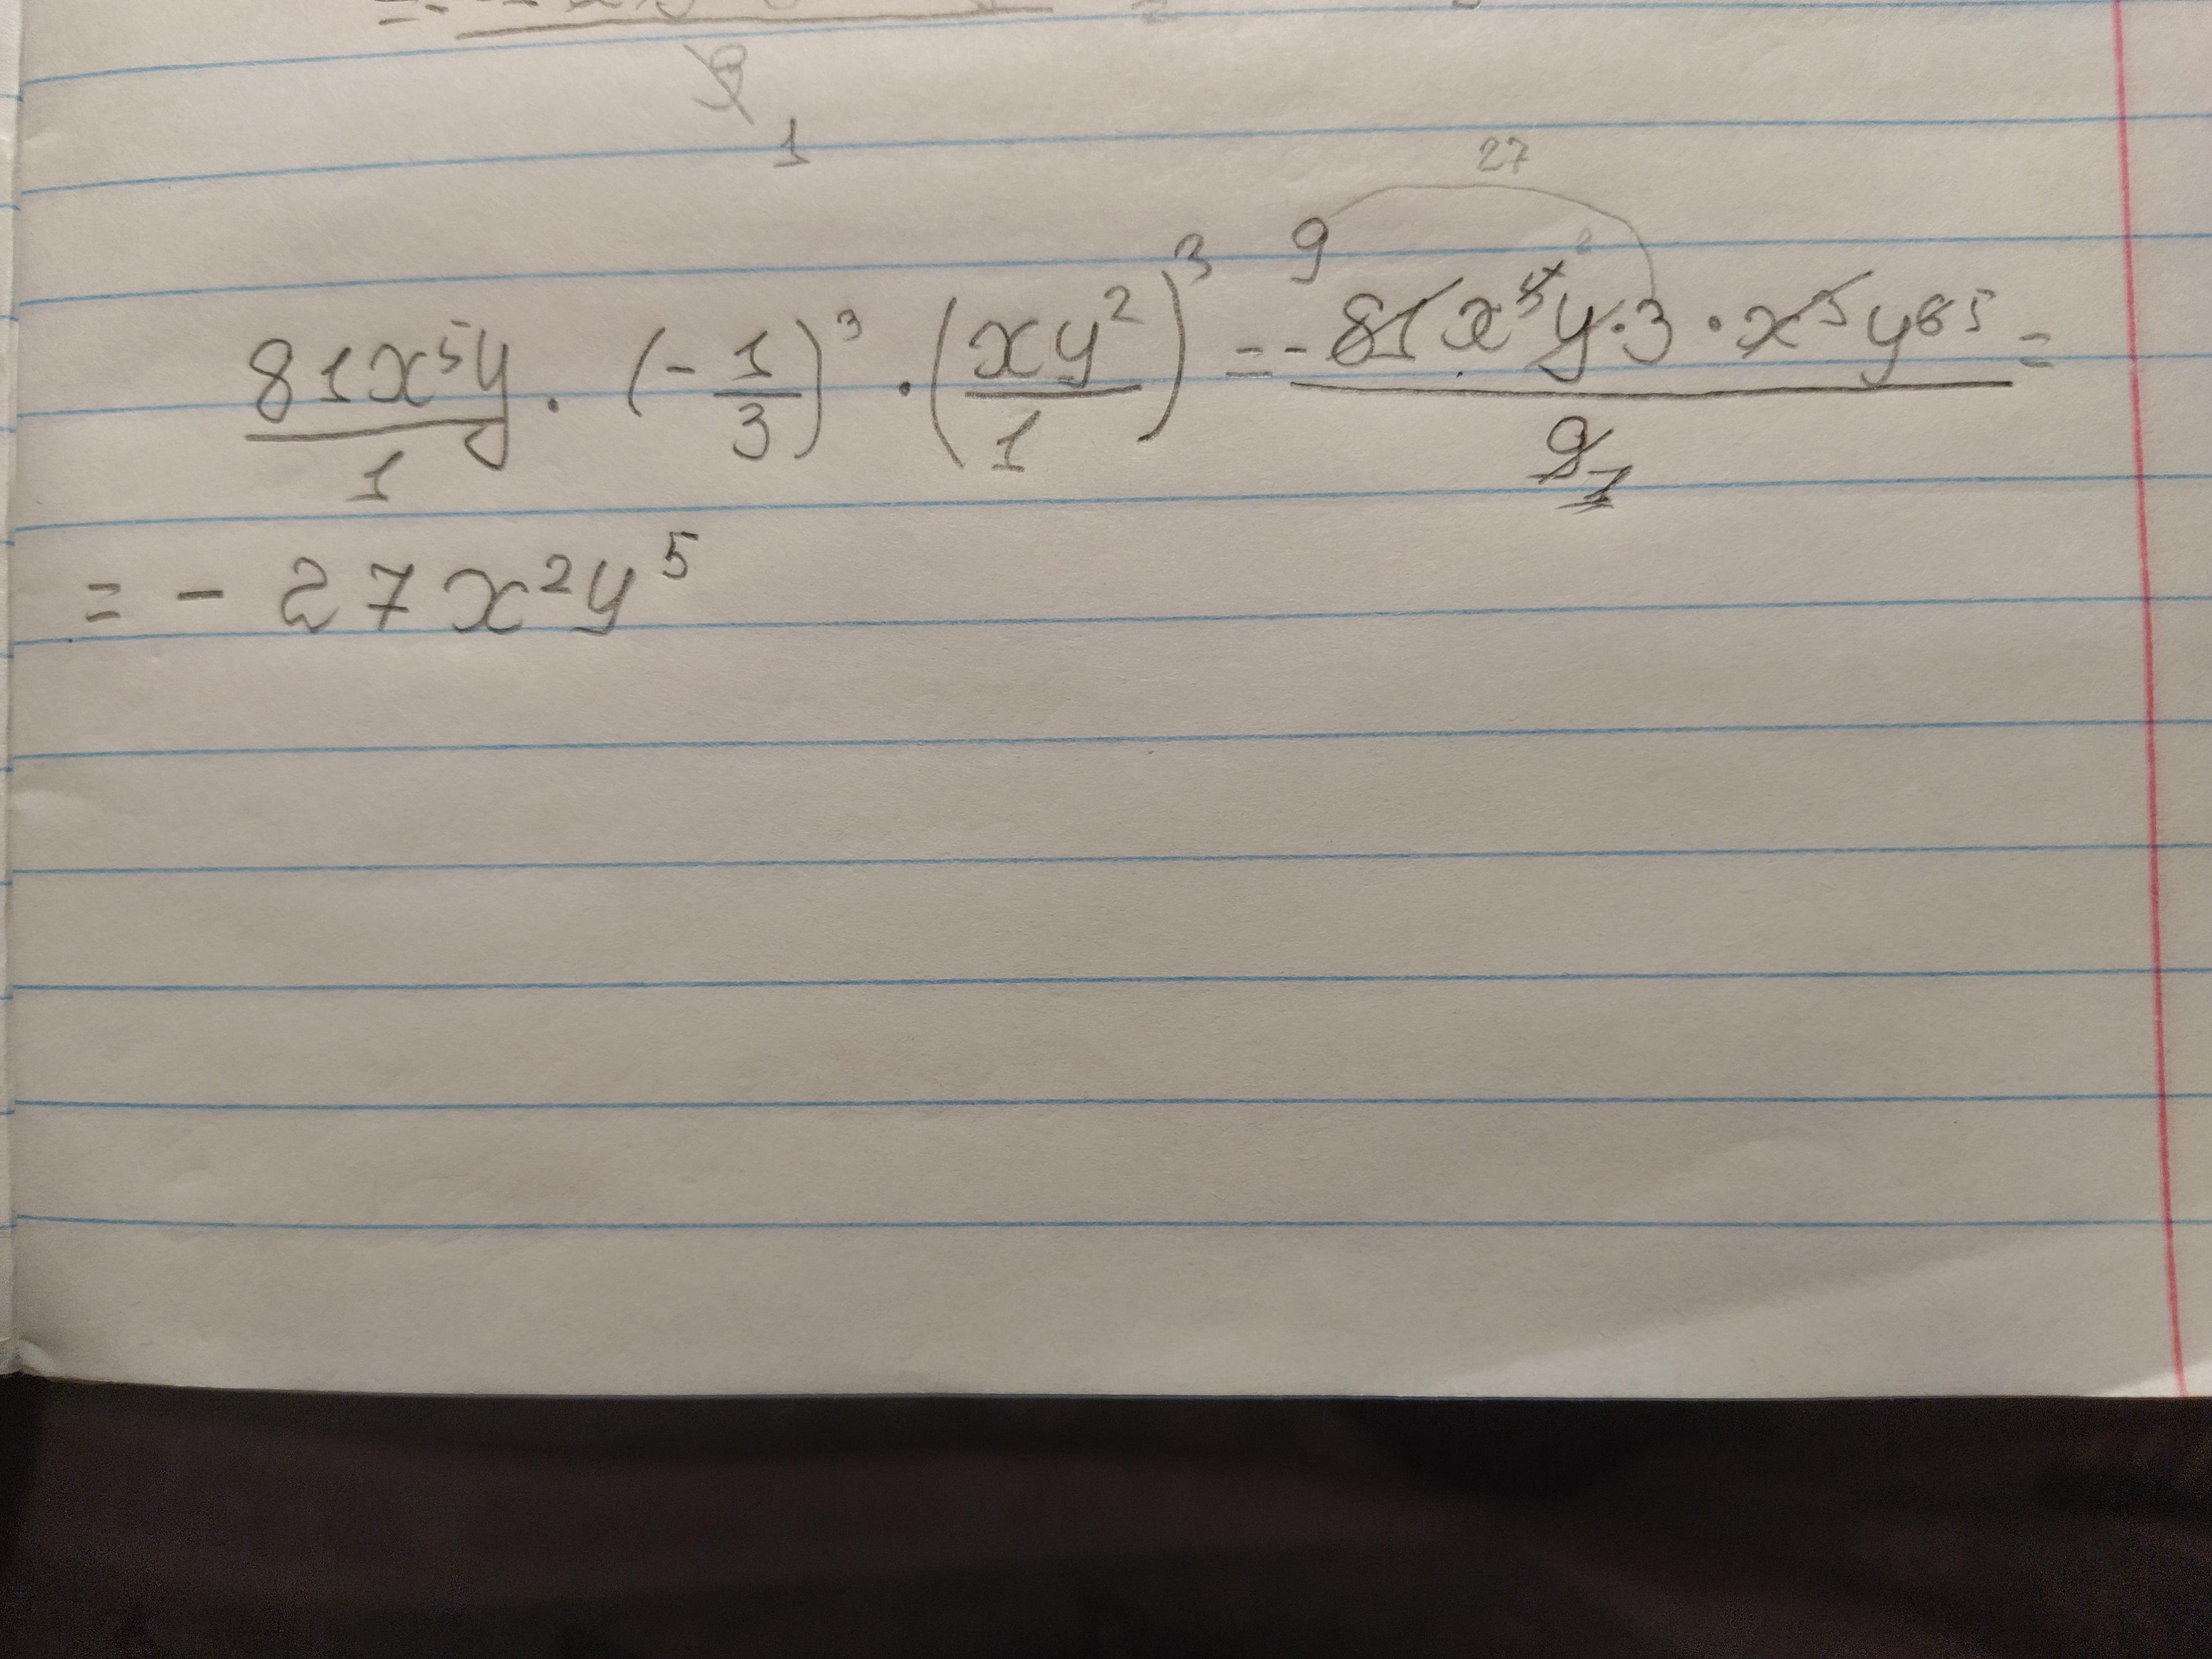 9
1
27
9 2
81x⁵y/1 · (-1/3)³ · (xy²/1)³ = -81x⁵y·3 · x³y⁶ ⁵/9 1 =
= - 27x²y⁵